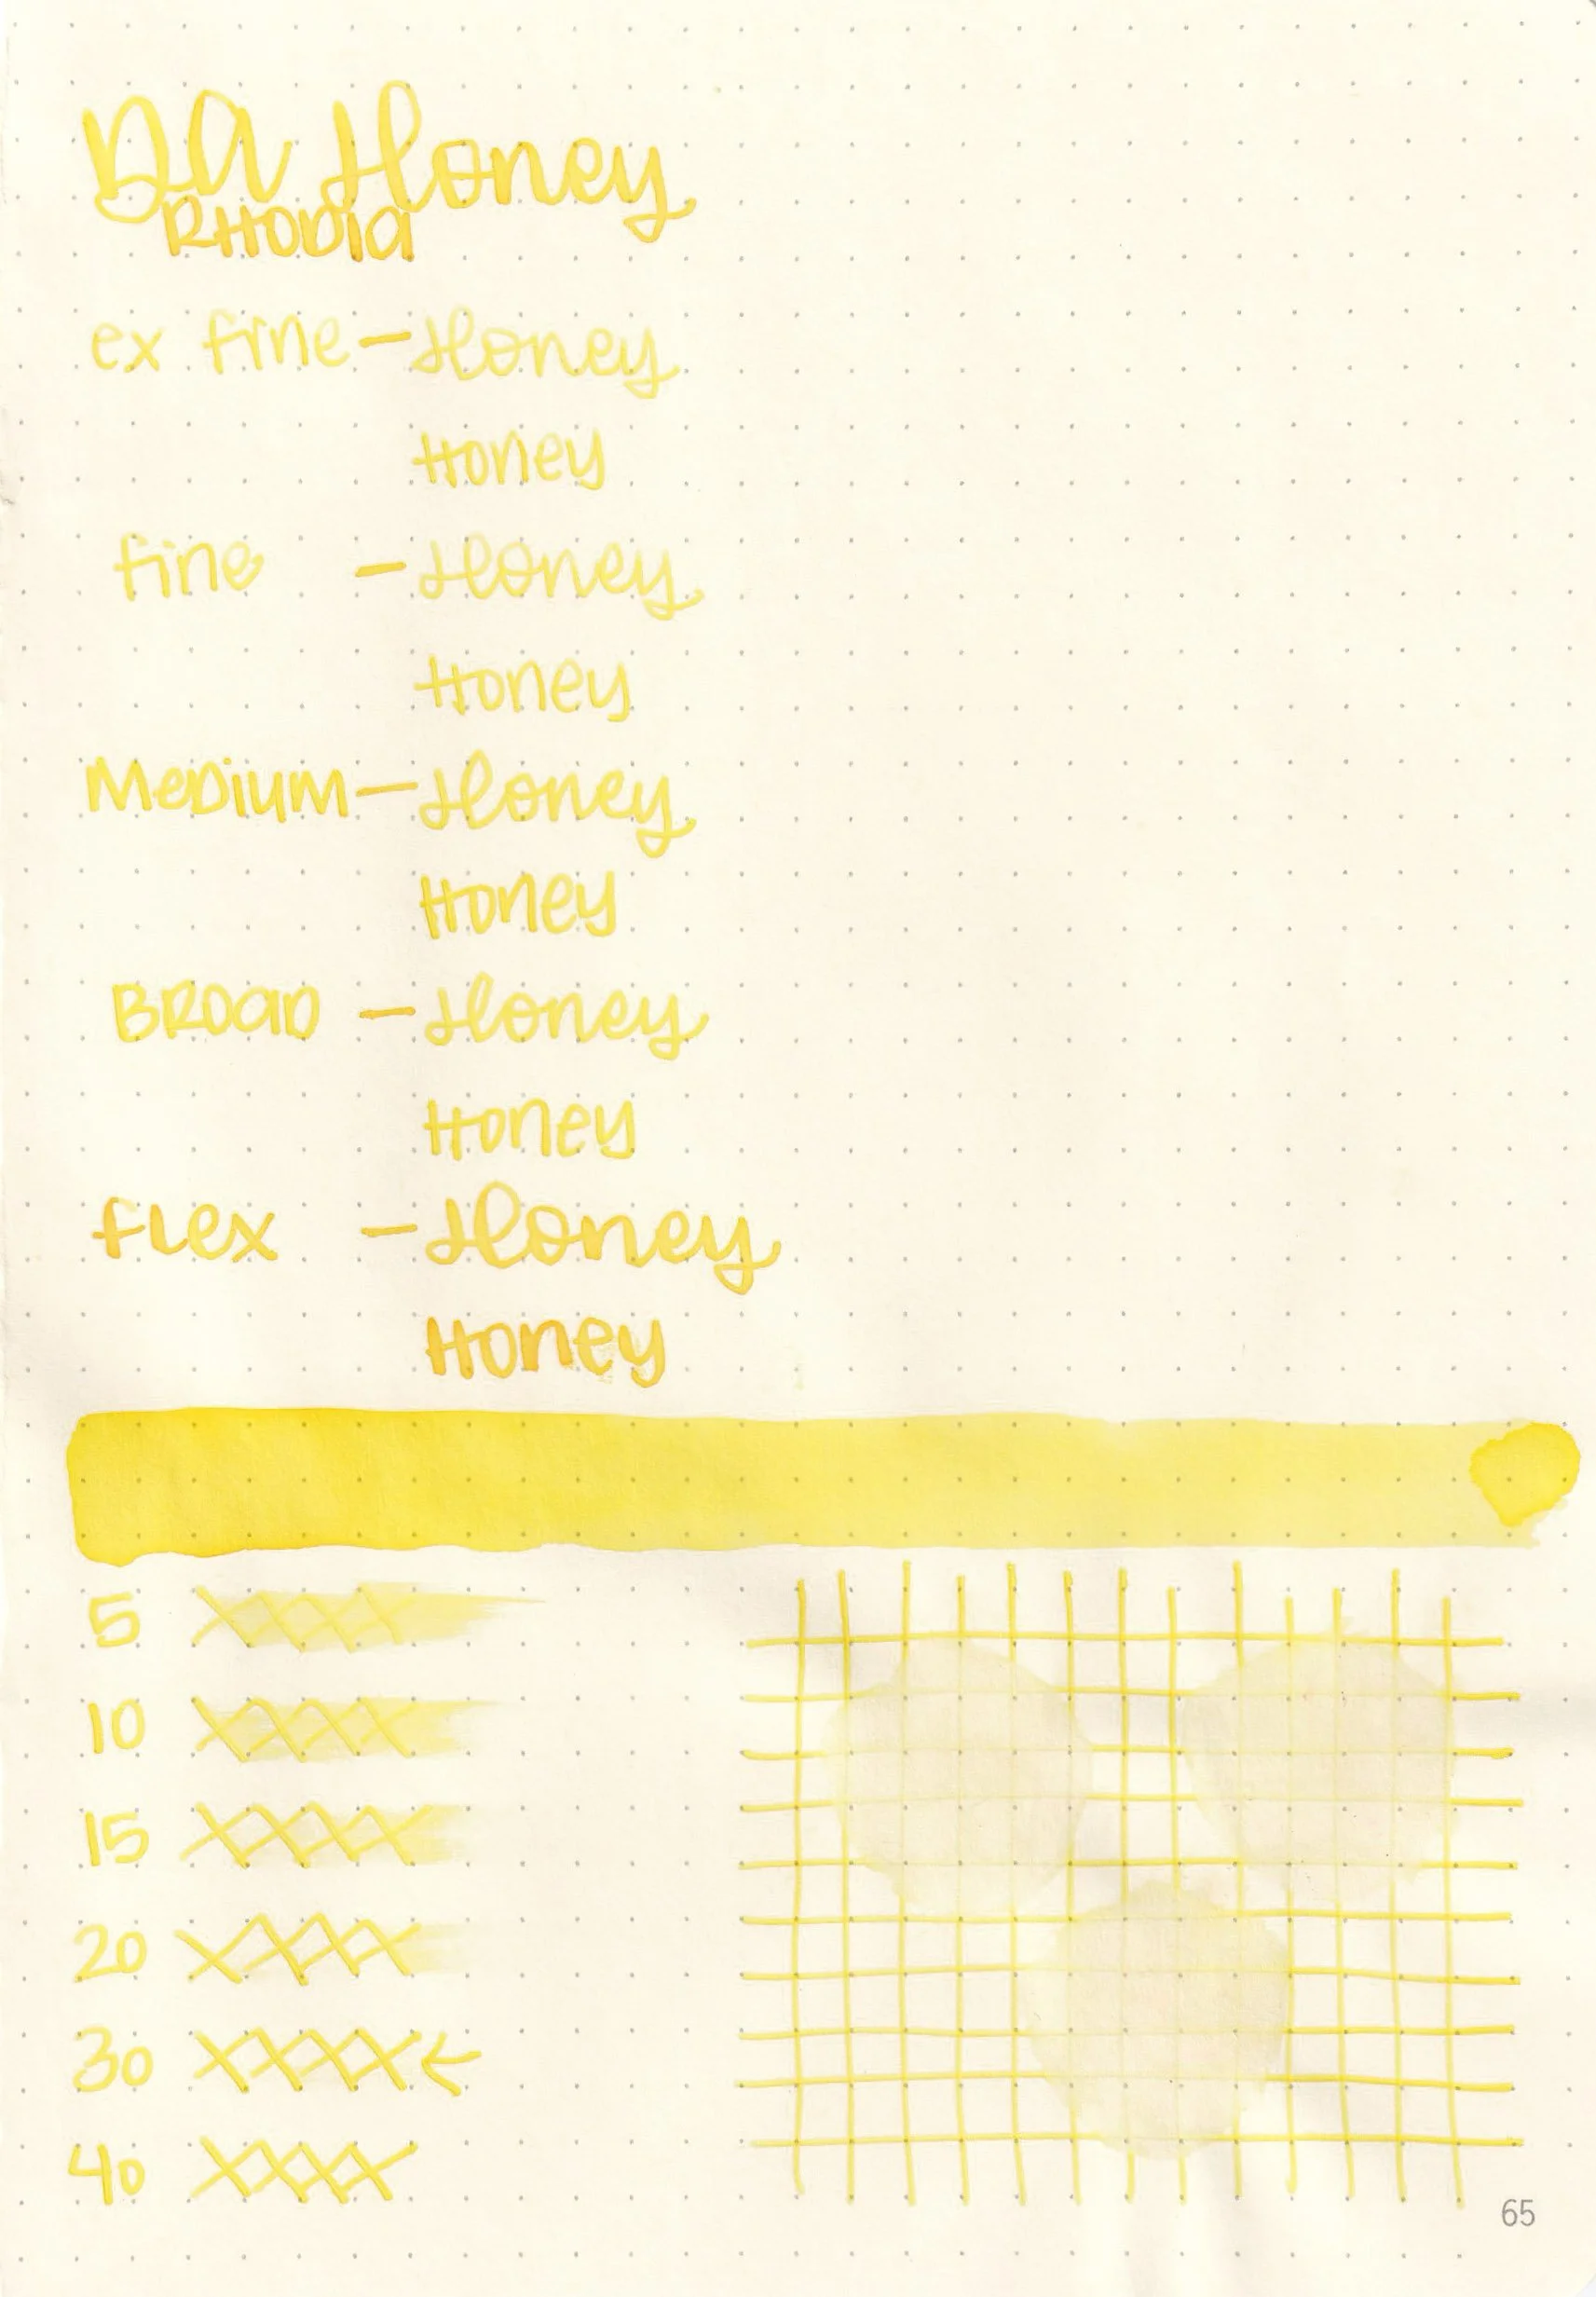 DA Honey
RHODIA
ex fine - Honey
Honey
fine - Honey
Honey
MeDium - Honey
Honey
BROAD - Honey
Honey
FLex - Honey
Honey
5
10
15
20
30 ←
40
65